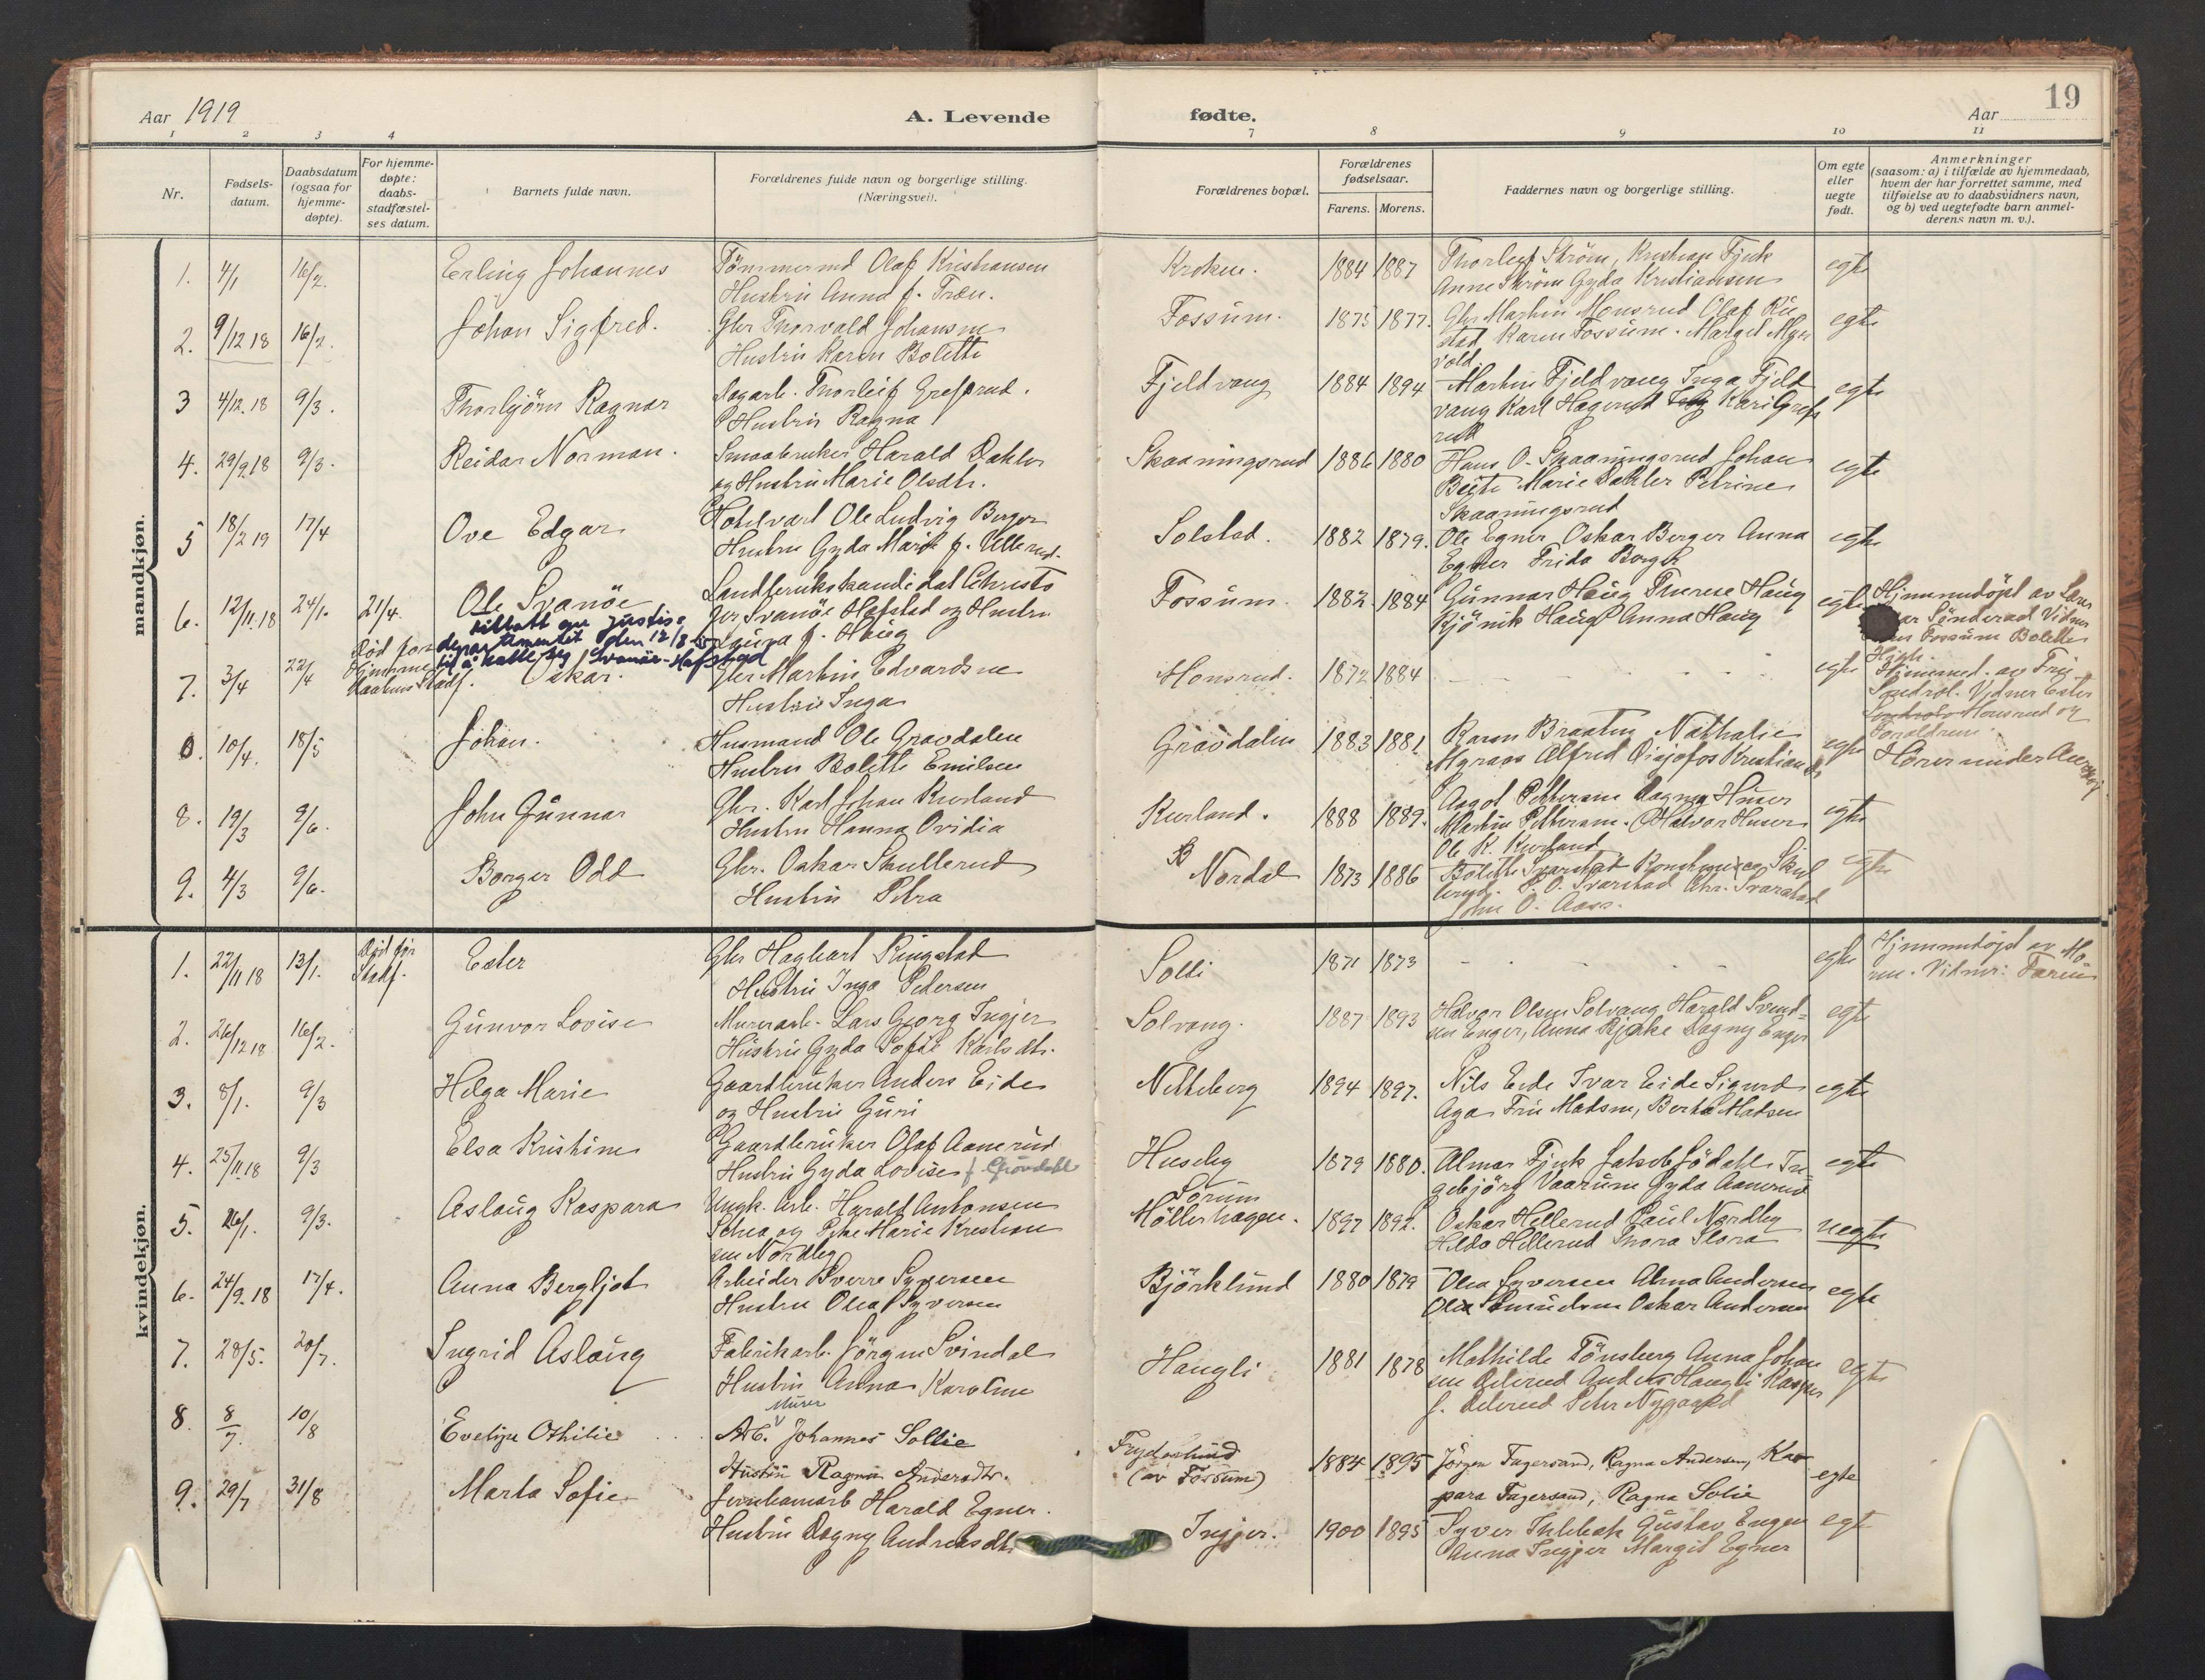 Aar 1919
A. Levende
fødte.
Aar
19
1 2 3 4 7 8 9 10 11
Nr.
Fødsels-
datum.
Daabsdatum
(ogsaa for
hjemme-
døpte).
For hjemme-
døpte:
daabs-
stadfæstel-
ses datum.
Barnets fulde navn.
Forældrenes fulde navn og borgerlige stilling.
(Næringsvei).
Forældrenes bopæl.
Forældrenes
fødselsaar.
Farens. Morens.
Faddernes navn og borgerlige stilling.
Om egte
eller
uegte
født.
Anmerkninger
(saasom: a) i tilfælde av hjemmedaab,
hvem der har forrettet samme, med
tilføielse av to daabsvidners navn,
og b) ved uegtefødte barn anmel-
derens navn m. v.).
mandkjøn.
1. 4/1 16/2. Erling Johannes
Tömmermd Olaf Kristiansen
Hustru Anna f. Træn.
Kroken. 1884 1887
Thorleif Strøm, Kristian Fjuk
Anne Strøm Gyda Kristiansen
egte
2. 9/12 18 16/2. Johan Sigfred.
Gbr Thorvald Johansen
Hustru Karen Bolette
Fossum. 1875 1877.
Gbr Martin Monsrud Olaf
stad Karen Fossum. Margit Myr
vold
egte
3 4/12.18 9/3. Thorbjörn Ragnar
Dagarb. Thorleif Grefsrud.
Hustru Ragna
Fjeldvang 1884 1894
Martin Fjeldvang Inga Fjeld
vang Karl Hagerud Kari Grefs
rud
egte
4. 29/9.18 9/3. Reidar Norman.
Smaabruker Harald Dahler
og Hustru Marie Olsdtr.
Skaaningsrud 1886 1880
Hans O. Skaaningsrud Johan
Marie Dahler Petrine
Skaaningsrud
egte
5 18/2 19 17/4 Ove Edgar
Hotelvært Ole Ludvig Berger
Hustru Gyda Marie f. Ullerud.
Solstad. 1882 1879.
Ole Egner Oskar Berger Anna
Egner Frida Berger
egte
6. 12/11.18 24/1. 21/4. Ole Svanöe
tillatt av justis-
departementet den 12/8
til å kalle seg Svanöe-Hafstad
Landbrukskandidat Christo
fer Svanöe Hafstad og Hustru
Laura f. Haug
Fossum. 1882. 1884
Gunnar Haug Therese Haug
Haug Anna Haug
egte
Hjemmedöpt av Lars
Sönderaad Vidner
Fossum Bolette
7. 3/4 22/4 Död før
Hjemme
daabens Stadf.
Oskar.
Gbr Martin Edvardsen
Hustru Inga
Monsrud. 1872 1884
egte
Hjemmed. av Frk.
Vidner Ester
Monsrud og
Foreldrene.
0. 10/4. 18/5 Johan.
Husmand Ole Gravdalen
Hustru Bolette Emilsen
Gravdalen 1883 1881
Karen Braaten Nathalie
Myraas Alfred
egte
Hører under Aurskog
8. 19/3 9/6. John Gunnar
Gbr. Karl Johan Kurland
Hustru Hanna Ovidia
Kurland. 1888 1889.
Aagot Pettersen Dagny Huser
Martin Pettersen. Halvor Huser
Ole K. Kurland
egte
9. 4/3 9/6. Borger Odd
Gbr. Oskar Skullerud
Hustru Petra
Nordal 1873 1886
Bolette Svarstad Skul
lerud. P. O. Svarstad Chr. Svarstad
John O. Aass.
egte
kvindekjøn.
1. 22/11 18 13/1. Död før
Stadf.
Ester
Gbr Hagbart Ringstad
Hustru Inga Pedersen
Solli 1871 1873
egte
Hjemmedöpt av Mo-
ren. Vidner: Faren
2. 26/12 18 16/2. Gunvor Lovise
Murerarb. Lars Georg Ingjer
Hustru Gyda Sofie Karlsdtr.
Solvang. 1887 1893
Halvor Olsen Solvang Harald Svend-
sen Enger, Anna Bjerke Dagny Enger
egte
3. 8/1. 9/3 Helga Marie
Gaardbruker Anders Eide
og Hustru Guri
Nitteberg 1894 1897.
Nils Eide Ivar Eide Sigurd
Aga Fru Madsen, Berta Madsen
egte
4. 25/11.18 9/3 Elsa Kristine
Gaardbruker Olaf Aanerud
Hustru Gyda Lovise f. Grövdahl
Huseby 1879 1880.
Almar Fjuk Jakob Södahl In-
gebjörg Vaarum Gyda Aanerud
egte
5. 26/1. 9/3. Aslaug Kaspara
Ungk. Arb. Harald Antonsen
og Pike Marie Kristian
sen Nordby
Sörum
Möllerhagen. 1897 1892.
Oskar Hellerud Paul Nordby
Hilda Hellerud Thora Slora
uegte
6. 24/9.18 17/4. Anna Bergljot
Arbeider Sverre Syversen
Hustru Olea Syversen
Björklund 1880 1879
Olea Syversen Alma Andersen
Olea Oskar Andersen
egte
7. 28/5. 20/7. Ingrid Aslaug
Fabrikarb. Jörgen Svindal
Hustru Anna Karoline
Haugli 1881 1878
Mathilde Tönsberg Anna Johan
sen Anders Haugli Kasper
J. Peter Nygaard
egte
8. 8/7. 10/8 Evelyn Othilie
Murer
Arb. Johannes Sollie
Hustru Ragna Andersdtr.
Frydeslund
(av Fossum) 1884 1895
Jörgen Fagersand, Ragna Andersen, Kas-
para Fagersand, Ragna Solie
egte
9. 29/7 31/8 Marta Sofie
Jernbanearb Harald Egner.
Hustru Dagny Andreasdtr
Ingjer. 1900 1895
Syver Gustav Engen
Anna Ingjer Margit Egner
egte